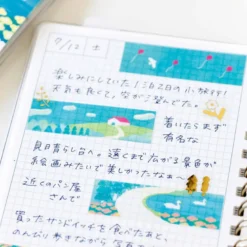 9/12 土
楽しみにしていた1泊2日の小旅行!
天気も良くて、空がご望んでた。
着いたらまず
有名な
見晴らし台へ。遠くまで広がる景色が
絵画みたいで美しかったなぁ〜
近くのパン屋
さんで
買ったサンドイッチを食べたあと、
のんびり歩きながら